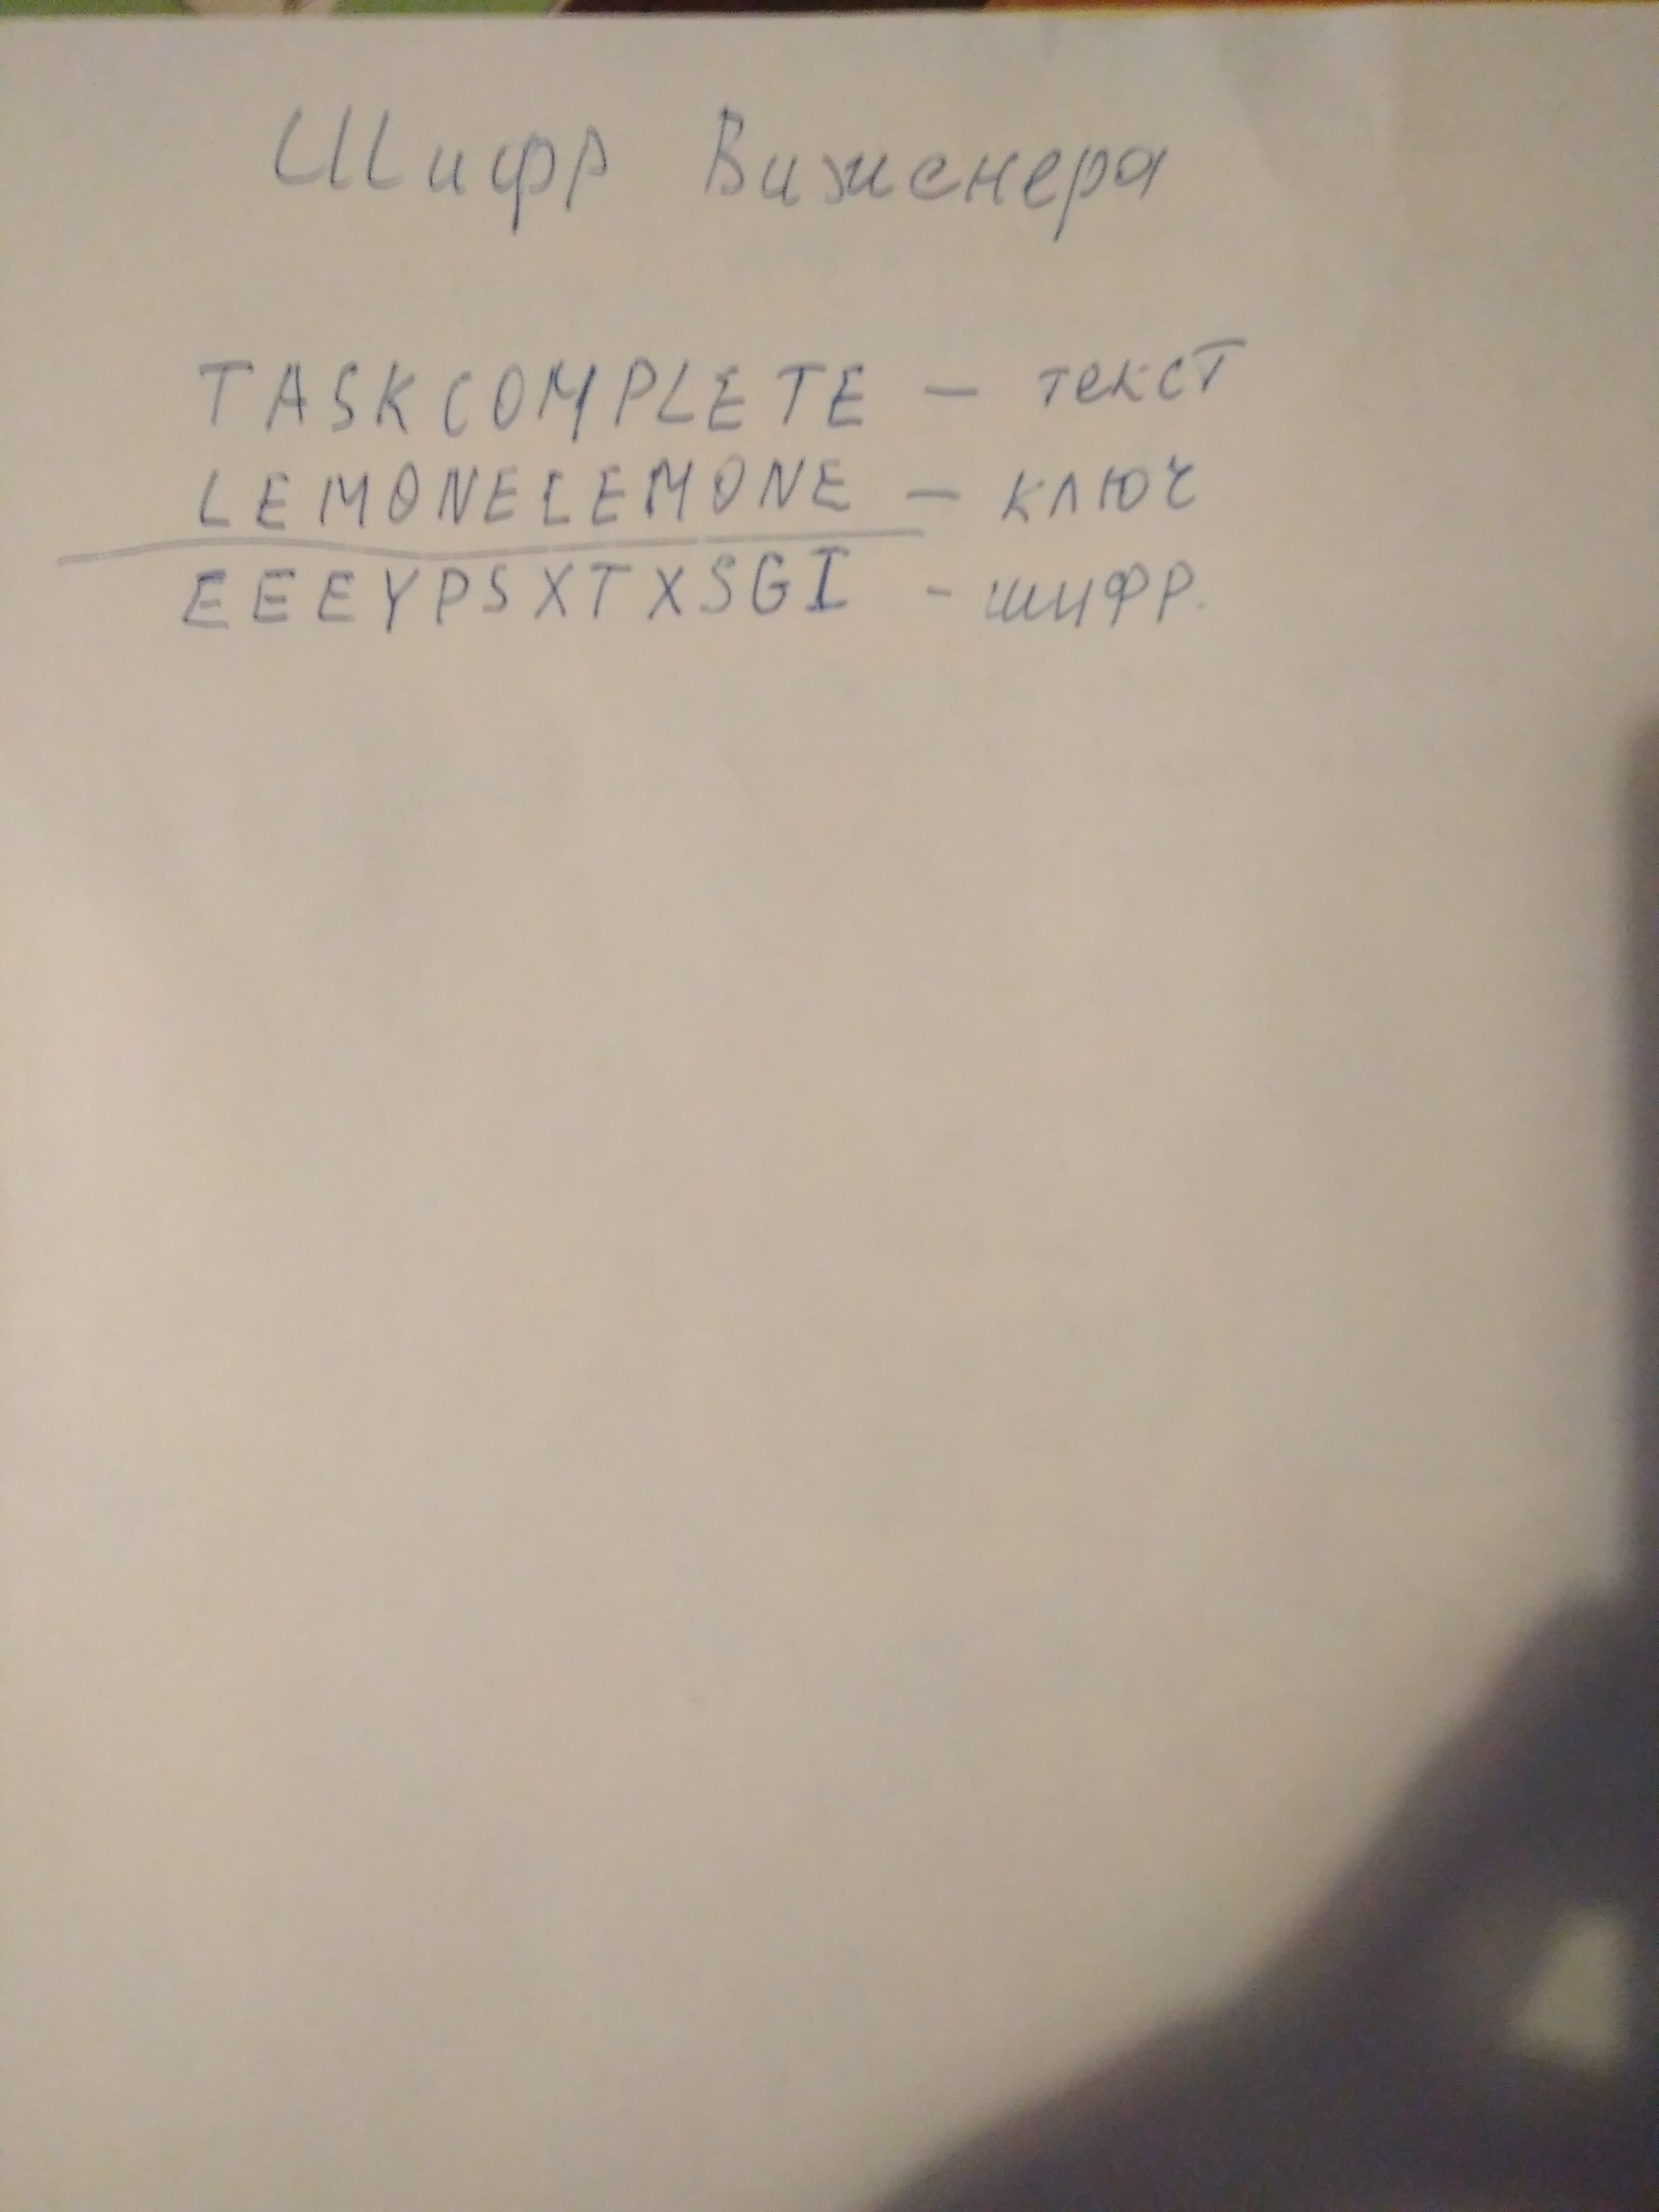 Шифр Виженера
TASKCOMPLETE – текст
LEMONELEMONE – ключ
EEEYPSXTXSGI - шифр.